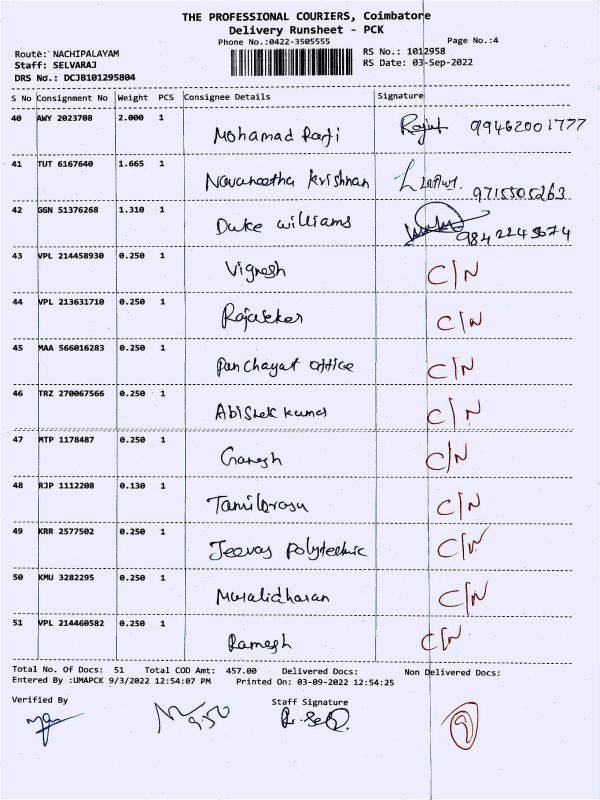 THE PROFESSIONAL COURIERS, Coimbatore
Delivery Runsheet - PCK
Phone No.:0422-3505555
Page No.:4
Route: NACHIPALAYAM
RS No.: 1012958
Staff: SELVARAJ
RS Date: 03-Sep-2022
DRS No.: DCJB101295804
S No Consignment No Weight PCS Consignee Details Signature
40 AWY 2023708 2.000 1
Mohamad Rafi 99462001777
41 TUT 6167640 1.665 1
Navaneetha Krishnan 9715505263
42 GGN 51376268 1.310 1
Duke williams
43 VPL 214458930 0.250 1
Vignesh C/N
44 VPL 213631710 0.250 1
Rajasekar C/N
45 MAA 566016283 0.250 1
Panchayat office C/N
46 TRZ 270067566 0.250 1
Abishek kumar C/N
47 MTP 1178487 0.250 1
Ganesh C/N
48 RJP 1112208 0.130 1
Tamilarasu C/N
49 KRR 2577502 0.250 1
Jeevas Polytechnic C/N
50 KMU 3282295 0.250 1
Muralidharan C/N
51 VPL 214460582 0.250 1
Ramesh C/N
Total No. Of Docs: 51 Total COD Amt: 457.00 Delivered Docs: Non Delivered Docs:
Entered By :UMAPCK 9/3/2022 12:54:07 PM Printed On: 03-09-2022 12:54:25
Verified By
Staff Signature
9:50
9